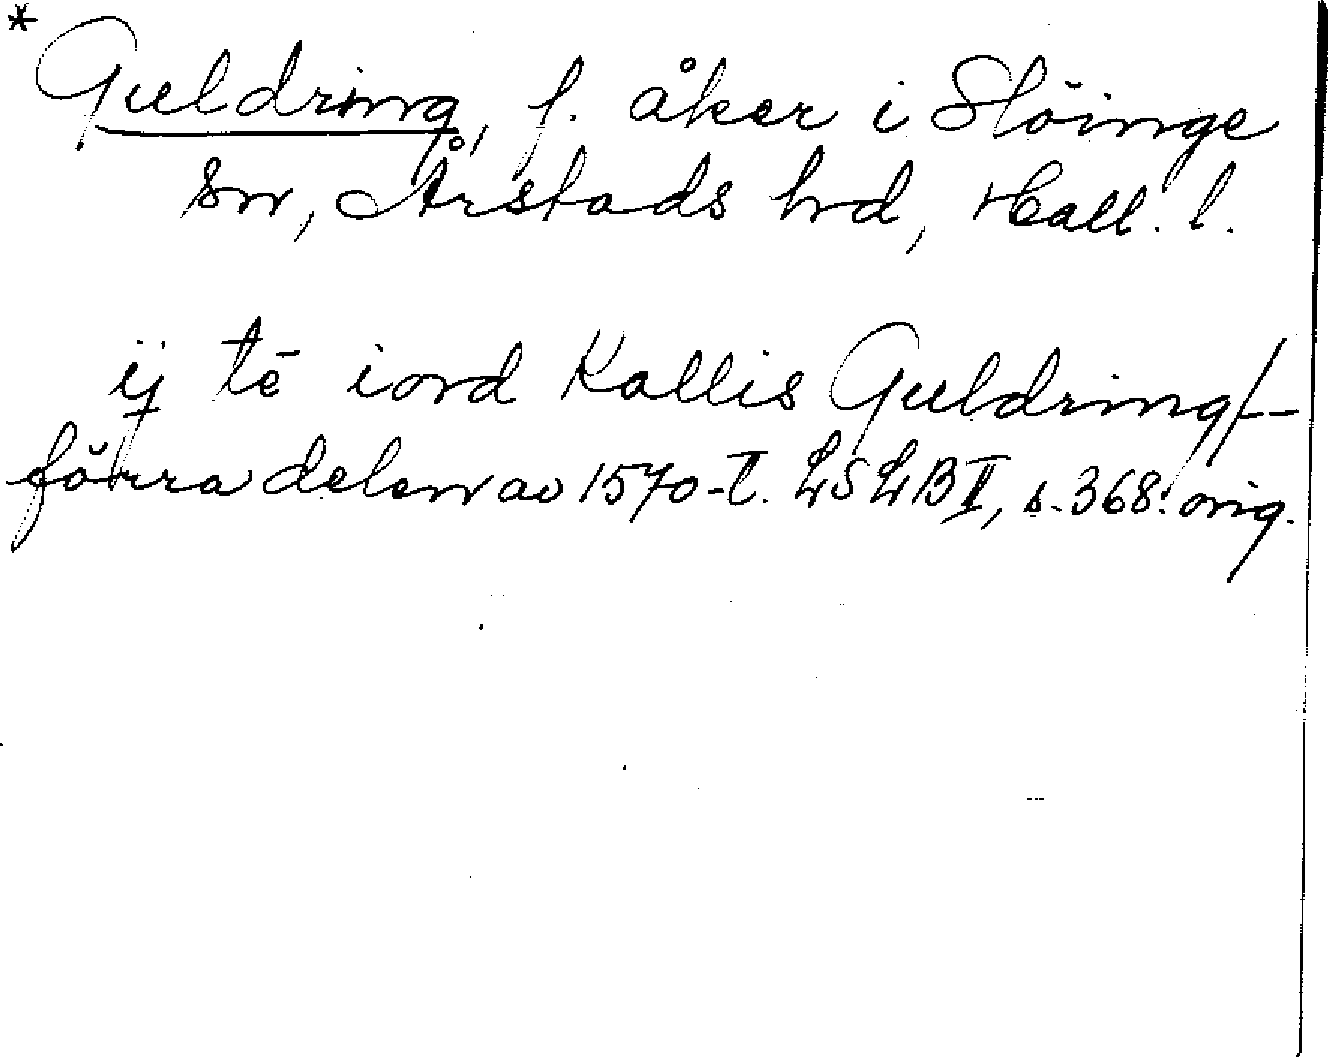 * Guldring, f. åker i Slöinge
sn, Årstads hd, Hall. l.
ij tē iord Kallis Guldring/–
förra delen av 1570-t. LSLB II, s. 368. orig.